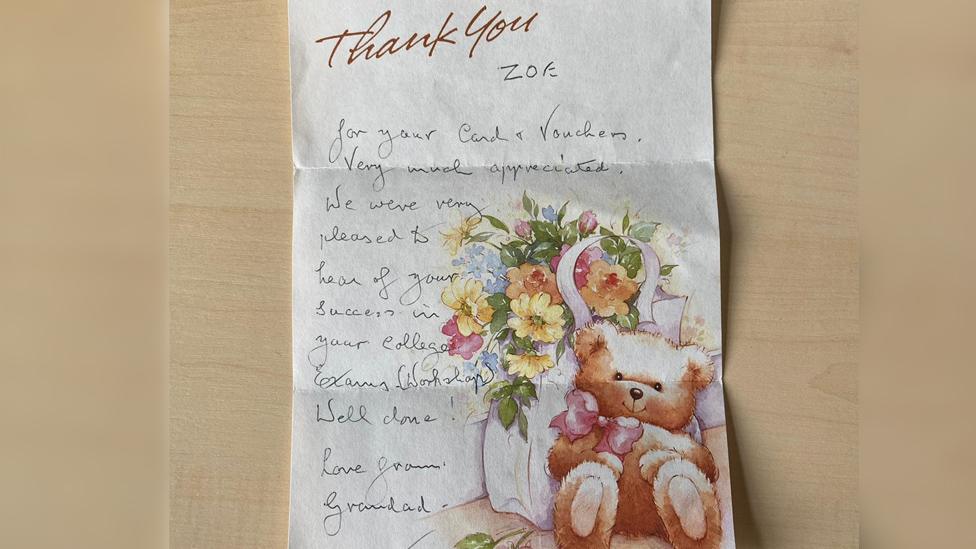 Thank You
ZOE
for your Card & Vouchers.
Very much appreciated.
We were very
pleased to
hear of your
Success in
your College
Exams (Workshop)
Well done!
Love from
Grandad.